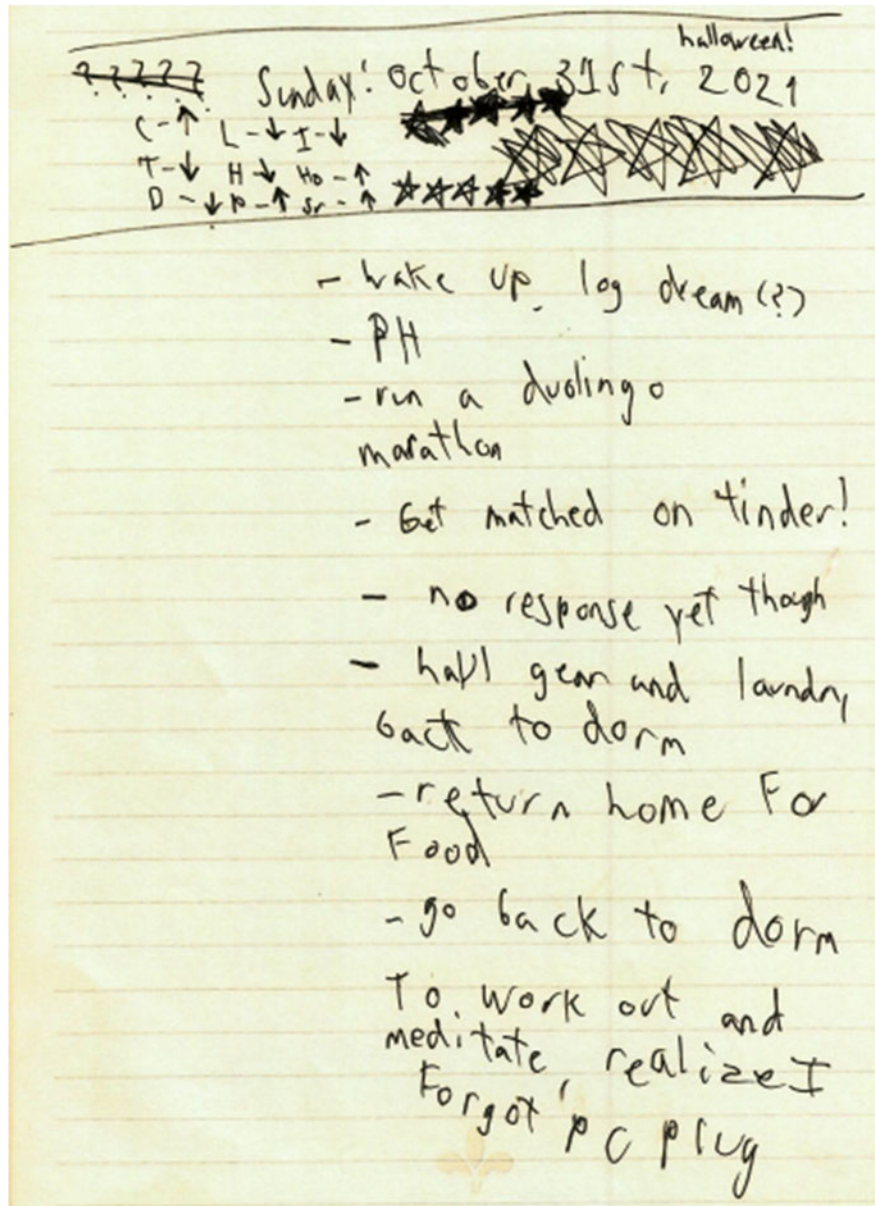 halloween!
?????
Sunday! October 31st, 2021
C-↑ L-↓ I-↓
T-↓ H↓ Ho-↑
D-↓ P-↑ Sr-↑
- wake up, log dream (?)
- PH
- run a duolingo
marathon
- Get matched on tinder!
- no response yet though
- haul gear and laundry
back to dorm
- return home For
Food
- go back to dorm
To work out and
meditate, realize I
Forgot PC plug